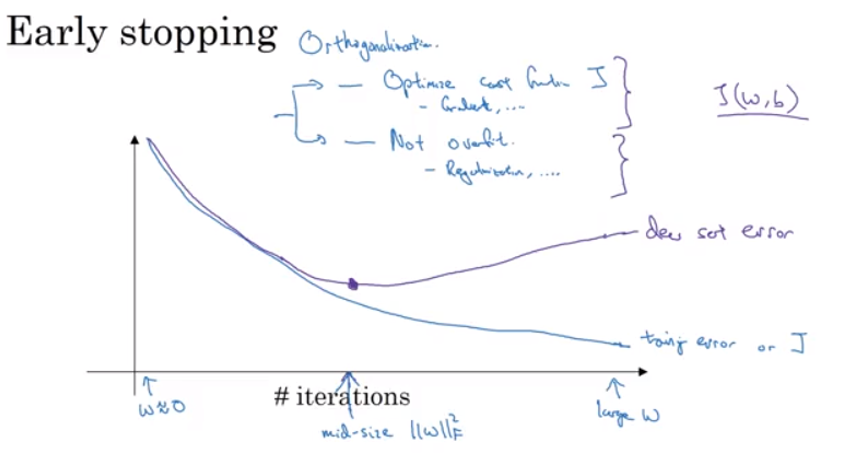 Early stopping
Orthogonalization.
— Optimize cost function J
- Gradient, ...
J(w,b)
— Not overfit.
- Regularization, ....
dev set error
training error or J
w≈0
# iterations
mid-size ||w||²_F
large w